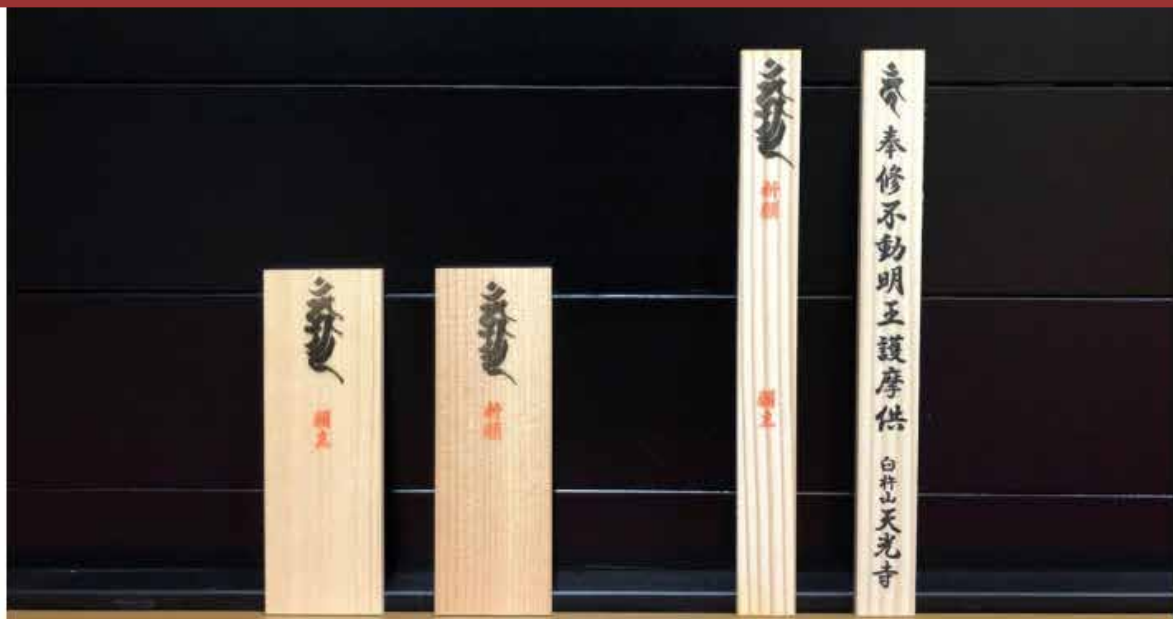 願主
祈願
祈願
願主
奉修不動明王護摩供 臼杵山天光寺